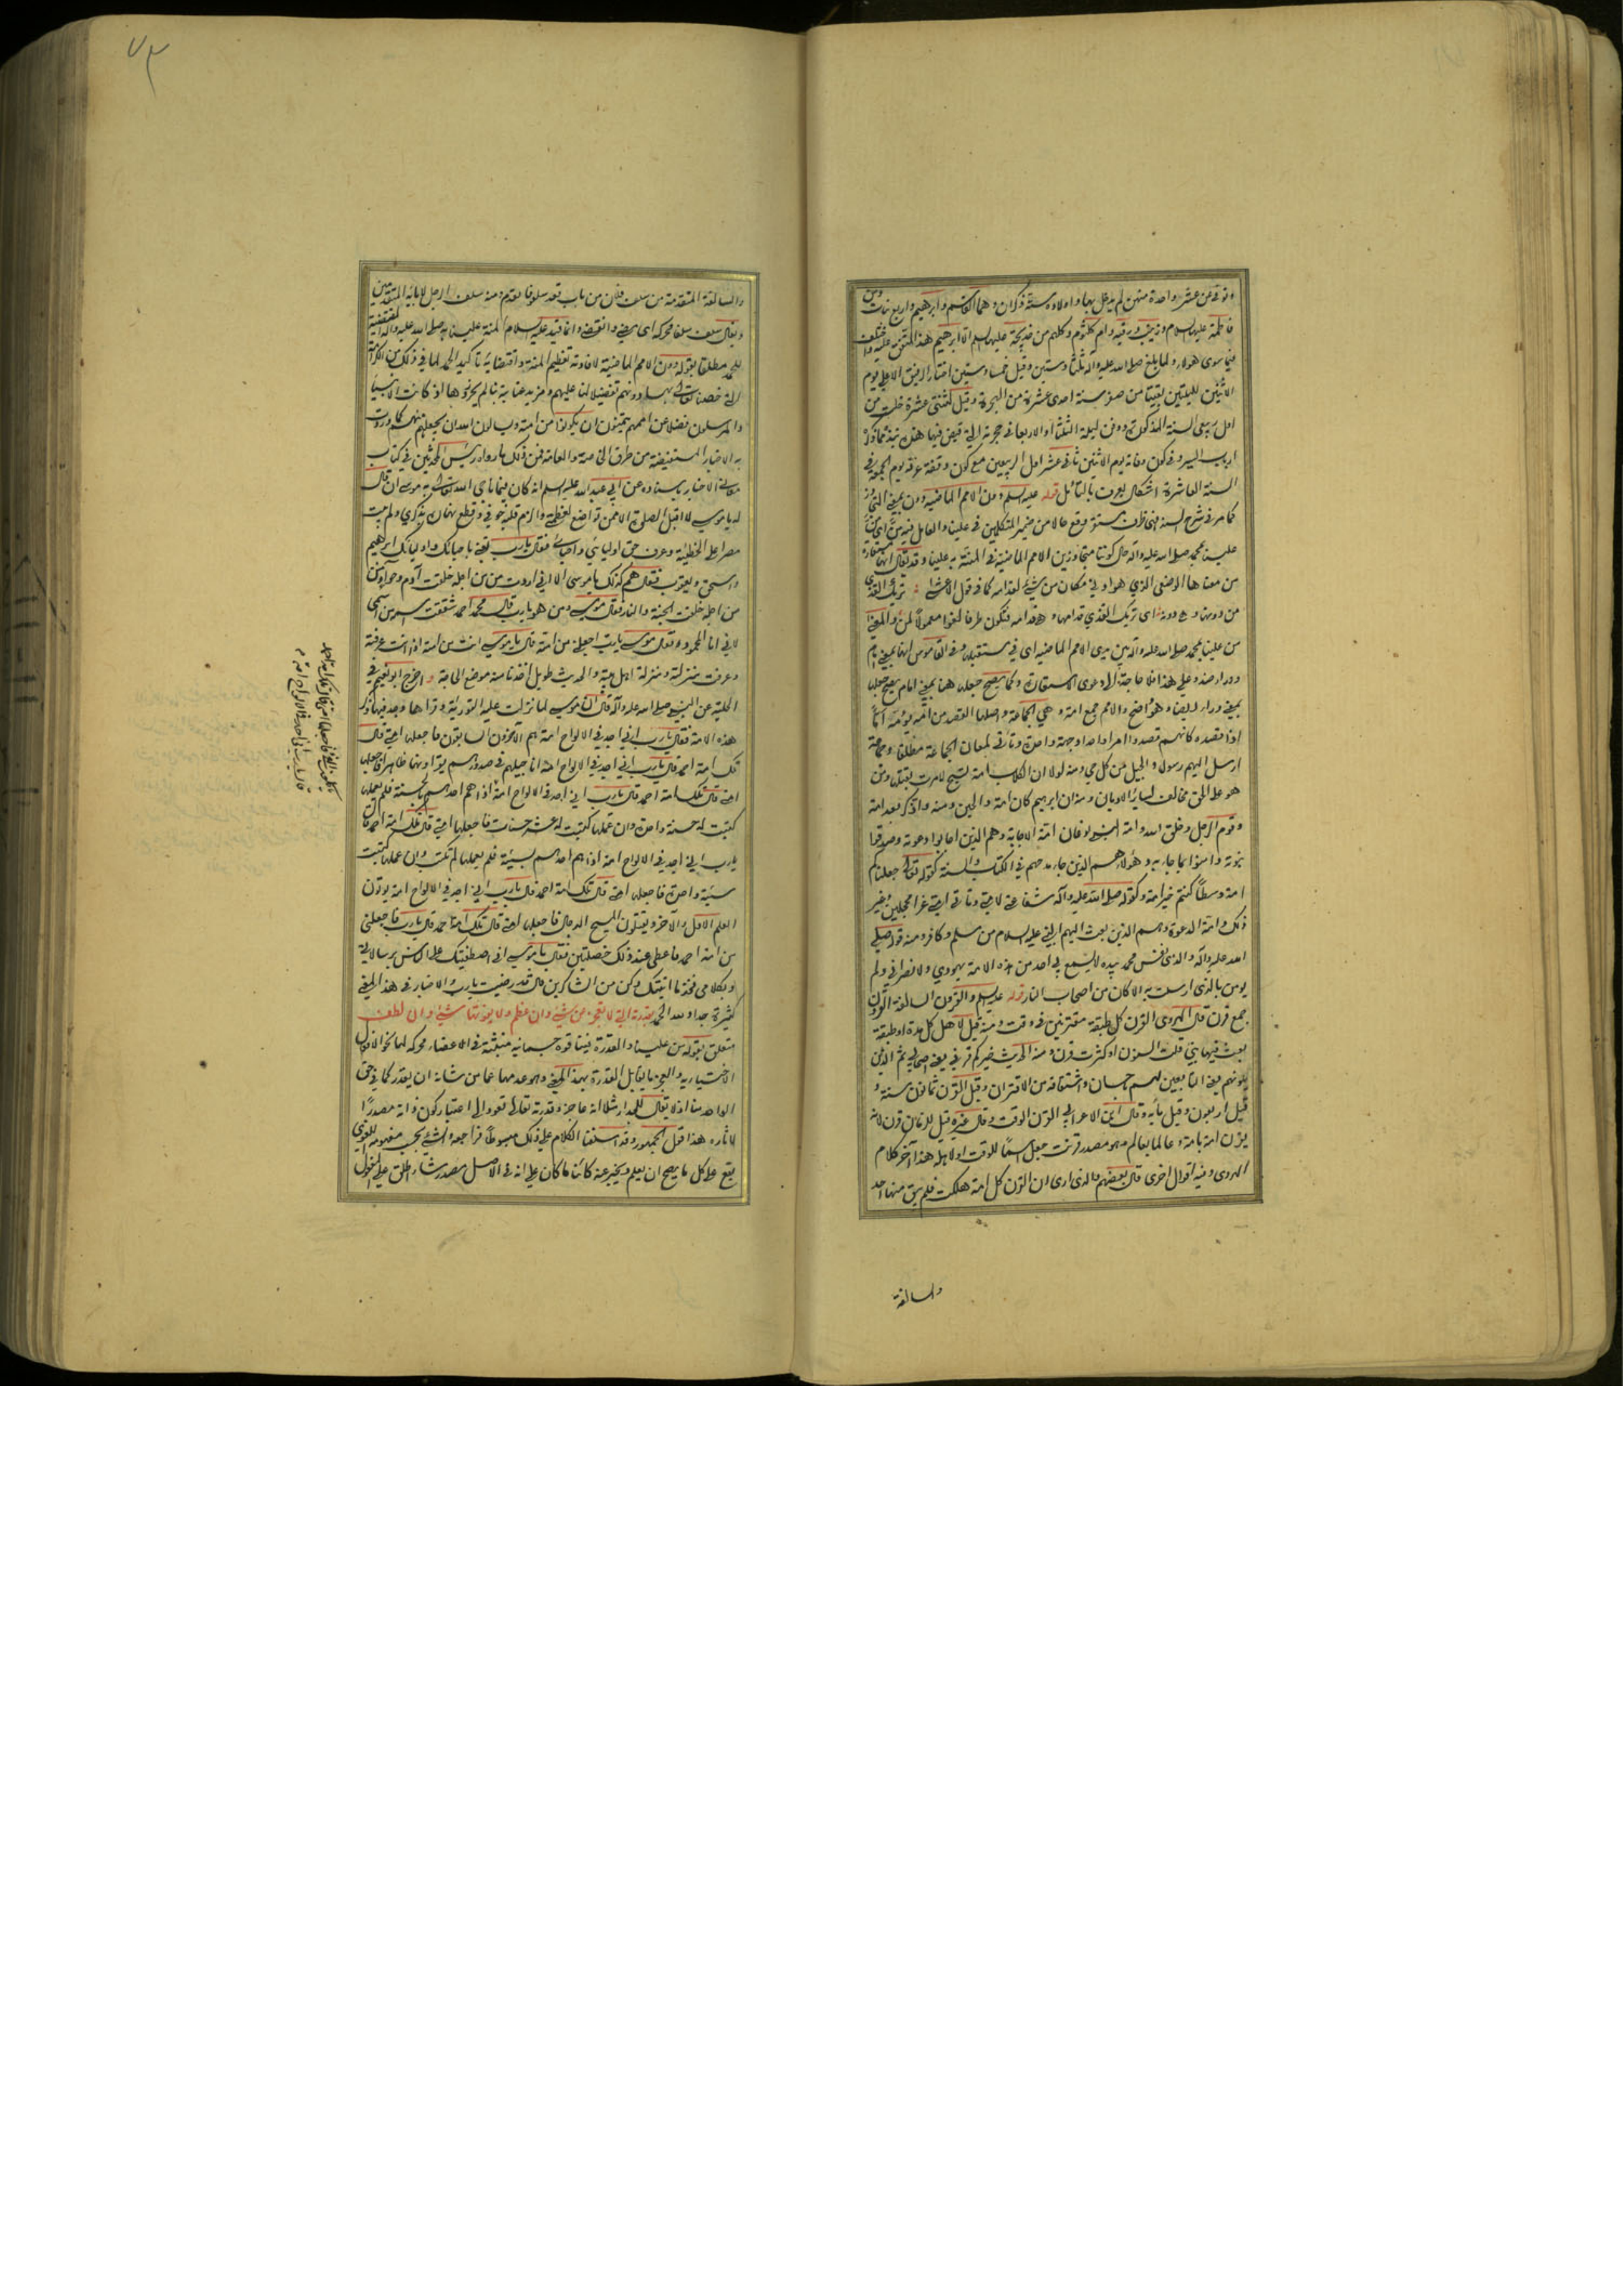 وتوفى عن عشر واحدة منهن لم يدخل بها واولاده ستة ذكران وهما القاسم وابرهيم واربع بنات وهن
فاطمة عليها السلام وزينب ورقيه وام كلثوم وكلهم من خديجة عليها السلم الا ابرهيم هذا المتفق عليه واختلف
فيما سوى هولاء ولما بلغ صلى الله عليه وآله ثلثا وستين وقيل خمسا وستين اختار الرفيق الاعلى يوم
الاثنين لليلتين بقيتا من صفر سنة احدى عشرة من الهجرة وقيل لثنتى عشرة خلت من
اول ربيعى السنة المذكورة ودفن ليلة الثلثا او الاربعا فى حجرته التى قبض فيها
ارباب السير وفى كون وفاته يوم الاثنين ثانى عشر اول الربيعين مع كون وقفة عرفة يوم الجمعة فى
السنة العاشرة اشكال يعرف بالتأمل قوله عليه السلم دون الامم الماضية دون بمعنى التجاوز
كما مر فى شرح السند فهى ظرف مستقر وقع حالا من ضمير المتكلمين فى علينا والعامل فيه من اى من
علينا بمحمد صلى الله عليه وآله حال كوننا متجاوزين الامم الماضية فى المنة به علينا وقد يقال انها مستعارة
من معناها الوضعى الذي هو ادنى مكان من شيء لقدامه كما فى قول الاعشى تريك القذى
من دونها وهى دونه اى تريك القذى قدامها وهى قدامه فتكون ظرفا لغوا معمولا لمن والمعنى
من علينا بمحمد صلى الله عليه وآله بين يدى الامم الماضيه اى فى مستقبلها وفى القاموس انها بمعنى امام
ووراء ضد وعلى هذا فلا حاجة الى دعوى الاستعارة وكما يصح جعلها هنا بمعنى امام يصح جعلها
بمعنى وراء ايضا وهو واضح والامم جمع امة وهي الجماعة واصلها القصد من امه يؤمه اما
اذا قصده كانهم قصدوا امرا واحدا وجهة واحدة وتأتى لمعان الجماعة مطلقا وجماعة
ارسل اليهم رسول والجيل من كل حي ومنه لولا ان الكلاب امة تسبح لامرت بقتلها ومن
هو على الحق مخالف لسائر الاديان ومنه ان ابرهيم كان امة والحين ومنه وادكر بعد امة
وقوم الرجل وخلق الله وامة النبى نوعان امة الاجابة وهم الذين اجابوا دعوته وصدقوا
نبوته وآمنوا بما جاء به وهؤلاء هم الذين جاء مدحهم فى الكتاب والسنة كقوله تعالى جعلناكم
امة وسطا كنتم خير امة وكقوله صلى الله عليه وآله شفاعتى لامتى وتأتى امتى غرا محجلين وغير
ذلك وامة الدعوة وهم الذين بعث اليهم النبي عليه السلام من مسلم وكافر ومنه قوله صلى
الله عليه وآله والذى نفس محمد بيده لا يسمع بى احد من هذه الامة يهودي ولا نصراني ولم
يومن بالذى ارسلت به الا كان من اصحاب النار قوله عليه السلم والقرون السالفة القرون
جمع قرن قال الهروى القرن كل طبقة مقترنين فى وقت ومنه قيل لاهل كل مدة او طبقة
بعث فيها نبى قلت السنون او كثرت قرن ومنه الحديث خيركم قرنى يعنى اصحابى ثم الذين
يلونهم يعنى التابعين لهم باحسان واشتقاقه من الاقتران وقيل القرن ثمانون سنة و
قيل اربعون وقيل مأية وقال ابن الاعرابى القرن الوقت وقال غيره قيل للزمان قرن لانه
يقرن امة بامة وعالما بعالم وهو مصدر قرنت جعل اسما للوقت او لاهله هذا آخر كلام
الهروى وفيه اقوال اخرى قال بعضهم والذى ارى ان القرن كل امة هلكت فلم يبق منها احد
والسالفة
والسالفة المتقدمة من سلف فلان من باب قعد سلوفا تقدم ومنه سلف الرجل لابائه المتقدمين
ويقال سلف سلفا محركة اى مضى وانقضى وانما قيد عليه السلام المنة علينا به صلى الله عليه وآله المقتضية
للحمد مطلقا بقوله دون الامم الماضية لافادته تعظيم المنة واقتضائه تأكيد الحمد لما فى ذلك من الكرامة
التى خصنا الله تعالى بها دونهم تفضيلا لنا عليهم ومزيد عناية بنا لم يحرزوها اذ كانت الانبياء
والمرسلون فضلا عن اممهم يتمنون ان يكونوا من امته ويسالون الله ان يجعلهم منهم كما وردت
به الاخبار المستفيضة من طرق الخاصة والعامة فمن ذلك ما رواه رئيس المحدثين فى كتاب
معانى الاخبار باسناده عن ابي عبد الله عليه السلم انه كان فيما ناجى الله تعالى به موسى ان قال
له يا موسى لا اقبل الصلوة الا ممن تواضع لعظمتى والزم قلبه خوفى وقطع نهاره بذكري ولم يبت
مصرا على الخطيئة وعرف حق اوليائي واحبائى فقال يا رب تعنى باحبائك واوليائك ابرهيم
واسحق ويعقوب فقال هم كذلك يا موسى الا انى اردت من من اجله خلقت آدم وحوا ومن
من اجله خلقت الجنة والنار فقال موسى ومن هو يا رب قال محمد احمد شققت اسمه من اسمى
لانى انا المحمود فقال موسى يا رب اجعلنى من امته قال يا موسى انت من امته اذا انت عرفته
وعرفت منزلته ومنزلة اهل بيته والحديث طويل اخذنا منه موضع الحاجة واخرج ابو نعيم فى
الحلية عن النبى صلى الله عليه وآله قال ان موسى لما نزلت عليه التورية وقراها وجد فيها ذكر
هذه الامة فقال يا رب انى اجد فى الالواح امة هم الآخرون السابقون فاجعلها امتى قال
تلك امة احمد قال يا رب انى اجد فى الالواح امة اناجيلهم فى صدورهم يقراونها ظاهرا فاجعلها
امتى قال تلك امة احمد قال يا رب انى اجد فى الالواح امة اذا هم احدهم بحسنة فلم يعملها
كتبت له حسنة واحدة وان عملها كتبت له عشر حسنات فاجعلها امتى قال تلك امة احمد قال
يا رب انى اجد فى الالواح امة اذا هم احدهم بسيئة فلم يعملها لم تكتب وان عملها كتبت
سيئة واحدة فاجعلها امتى قال تلك امة احمد قال يا رب انى اجد فى الالواح امة يوتون
العلم الاول والآخر ويقتلون المسيح الدجال فاجعلها امتى قال تلك امة احمد قال يا رب فاجعلنى
من امة احمد فاعطى عند ذلك خصلتين فقال يا موسى انى اصطفيتك على الناس برسالاتى
وبكلامى فخذ ما اتيتك وكن من الشاكرين قال قد رضيت يا رب والاخبار فى هذا المعنى
كثيرة جدا ولله الحمد بقدرته التى لا تعجز عن شيء وان عظم ولا يفوتها شيء وان لطف
متعلق بقوله من علينا والقدرة فينا قوة جسمانيه منبثة فى الاعضاء محركة لها نحو الافعال
الاختياريه والعجز ما يقابل القدرة بهذا المعنى وهو عدمها عما من شانه ان يقدر كما فى حق
الواحد منا اذ لا يقال للجدار مثلا انه عاجز وقدرته تعالى تعود الى اعتبار كون ذاته مصدرا
لاثاره هذا قول الجمهور وقد اسلفنا الكلام على ذلك مبسوطا فراجعه والشيء بحسب مفهومه اللغوي
يقع على كل ما يصح ان يعلم ويخبر عنه كائنا ما كان على انه فى الاصل مصدر شاء اطلق على المفعول